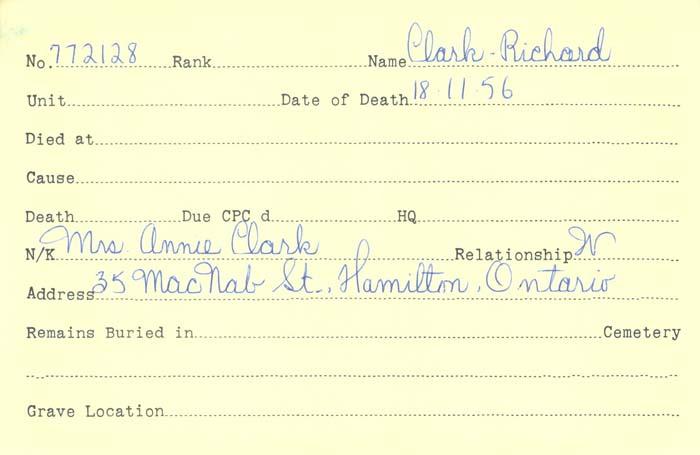 No. 772128 Rank Name Clark - Richard
Unit Date of Death 18.11.56
Died at
Cause
Death Due CPC d HQ
N/K Mrs. Annie Clark Relationship W
Address 35 MacNab St., Hamilton, Ontario
Remains Buried in Cemetery
Grave Location